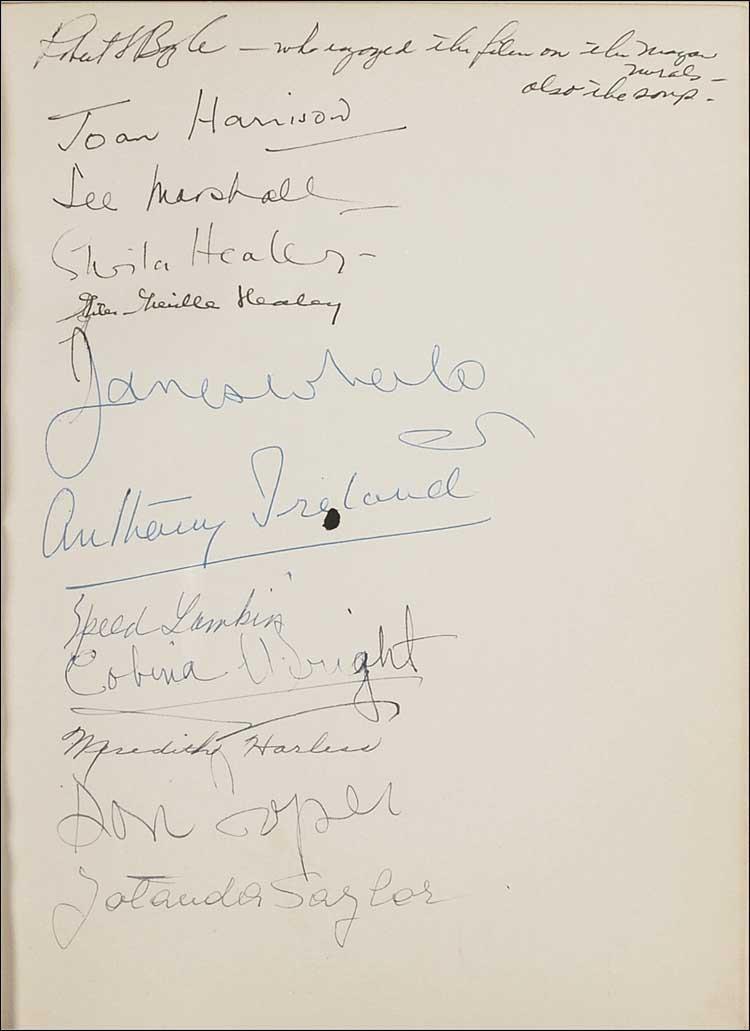 Robert S Boyle – who enjoyed the film on the Mayan
murals –
also the soup.
Joan Harrison
Lee Marshall
Sheila Healey –
Giles Greville Healey
James Whale
Anthony Ireland
Speed Lamkin
Cobina Wright
Meredithe Harless
Don Loper
Jolanda Saylor